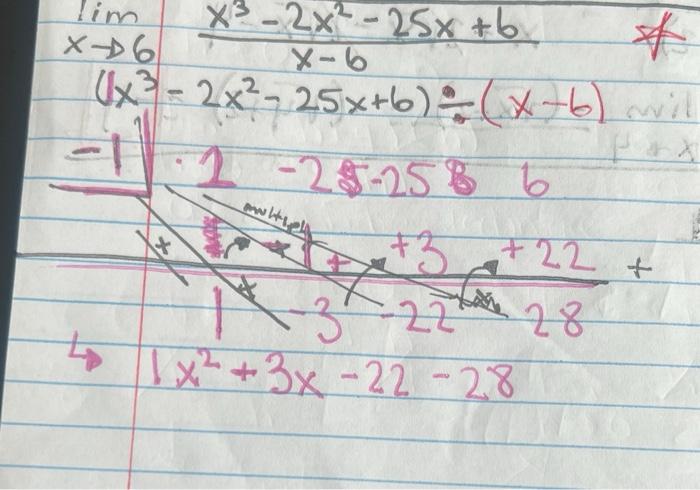 lim x³ - 2x² - 25x + 6
x→6 x-6
(1x³ - 2x² - 25x+6) ÷ (x-6)
-1 1 -2 -25 6
multiply
-1 +3 +22 +
1 -3 -22 28
↳ 1x² + 3x - 22 - 28